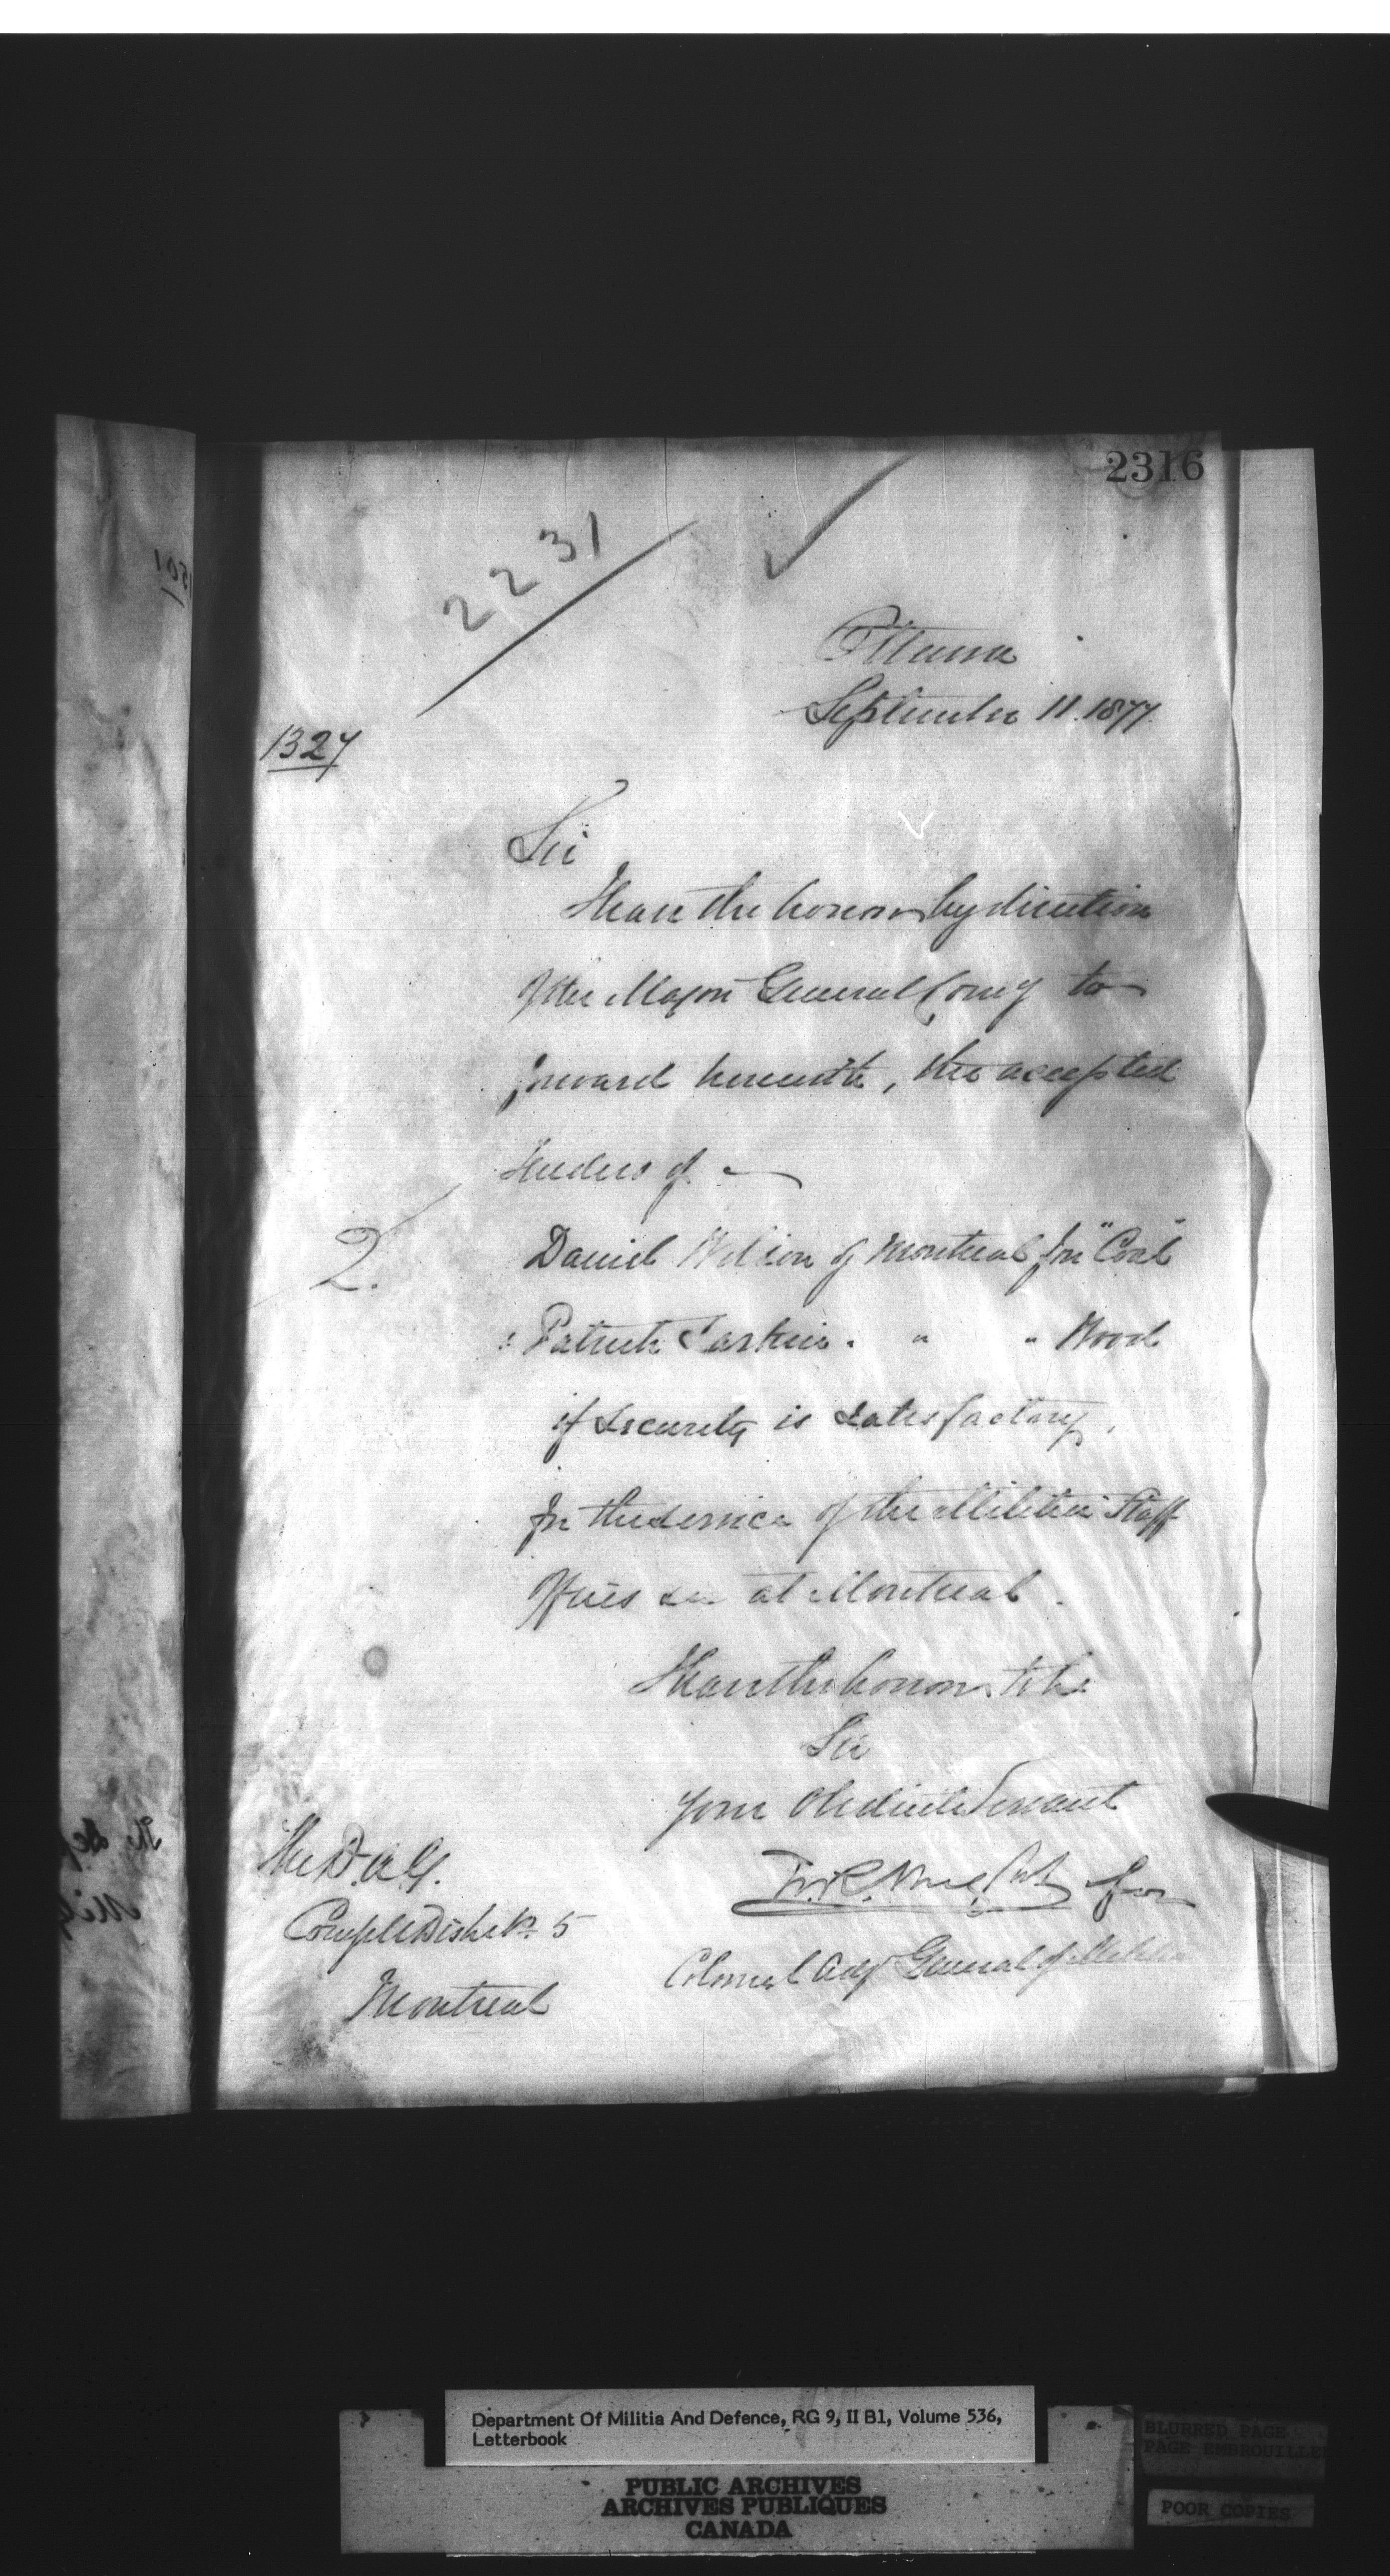 2316
2231
Ottawa
September 11. 1877.
1327
Sir
I have the honor by direction
of the Major General Comg to
forward herewith, the accepted
tenders of
2.
Daniel Wilson of Montreal for "Coal"
" Patrick Larkin " " " Wood
if security is satisfactory,
for the service of the Militia Staff
Offices &c at Montreal.
I have the honor to be
Sir
Your Obedient Servant
for
Colonel Adjt General of Militia
The D.A.G.
Comg Mil District No. 5
Montreal
1501
The Dep
Department Of Militia And Defence, RG 9, II B1, Volume 536,
Letterbook
PUBLIC ARCHIVES
ARCHIVES PUBLIQUES
CANADA
BLURRED PAGE
PAGE EMBROUILLE
POOR COPIES